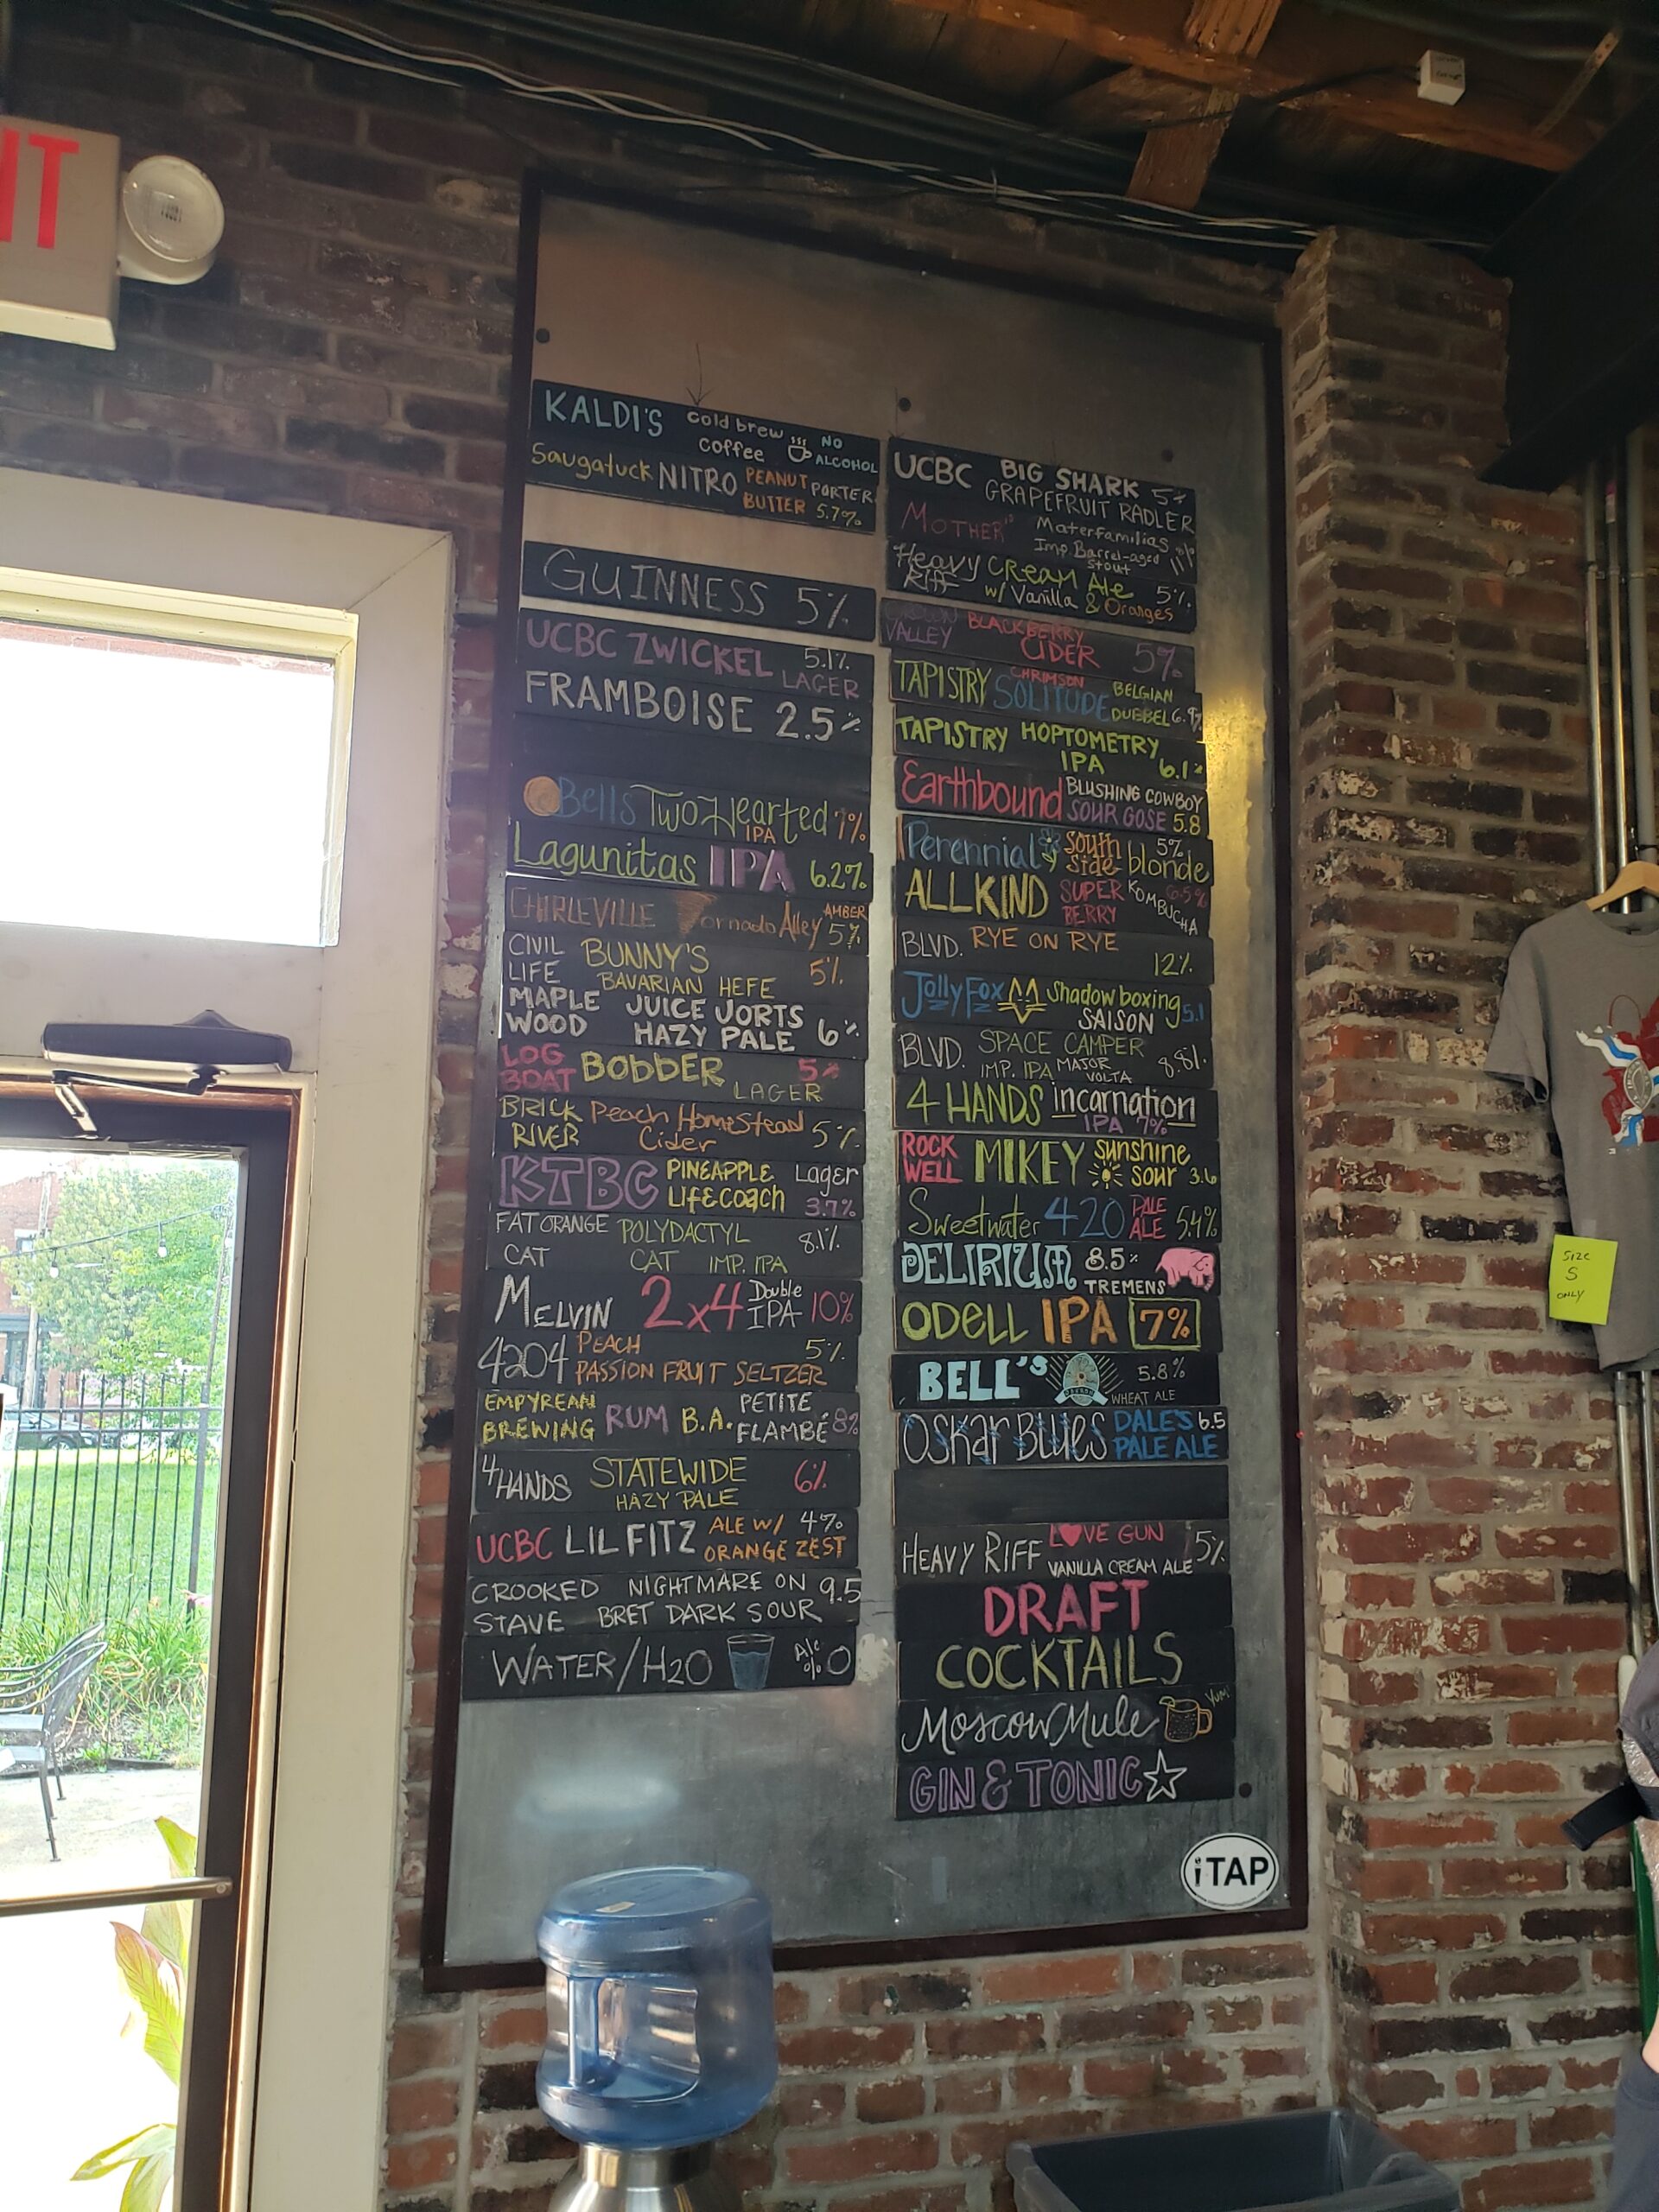 IT
KALDI'S cold brew coffee NO ALCOHOL
Saugatuck NITRO PEANUT BUTTER PORTER 5.7%
GUINNESS 5%
UCBC ZWICKEL 5.1% LAGER
FRAMBOISE 2.5%
Bells Two Hearted IPA 7%
Lagunitas IPA 6.2%
CHARLEVILLE Tornado Alley AMBER 5%
CIVIL LIFE BUNNY'S BAVARIAN HEFE 5%
MAPLE WOOD JUICE JORTS HAZY PALE 6%
LOG BOAT BOBBER 5% LAGER
BRICK RIVER Peach HomeStead Cider 5%
KTBC PINEAPPLE Lifecoach Lager 3.7%
FAT ORANGE CAT POLYDACTYL CAT IMP. IPA 8.1%
MELVIN 2x4 Double IPA 10%
4204 PEACH PASSION FRUIT SELTZER 5%
EMPYREAN BREWING RUM B.A. PETITE FLAMBÉ 8%
4 HANDS STATEWIDE HAZY PALE 6%
UCBC LIL FITZ ALE W/ ORANGE ZEST 4%
CROOKED STAVE NIGHTMARE ON BRET DARK SOUR 9.5
WATER/H2O Alc % 0
UCBC BIG SHARK GRAPEFRUIT RADLER 5%
MOTHER'S Materfamilias Imp Barrel-aged Stout
Heavy Riff Cream Ale w/ Vanilla & Oranges 5%
VALLEY BLACKBERRY CIDER 5%
TAPISTRY CHRIMSON SOLITUDE BELGIAN DUBBEL 6.9%
TAPISTRY HOPTOMETRY IPA 6.1%
Earthbound BLUSHING COWBOY SOUR GOSE 5.8
Perennial South Side blonde 5%
ALLKIND SUPER BERRY KOMBUCHA 6.5%
BLVD. RYE ON RYE 12%
Jolly Fox Shadow boxing SAISON 5.1
BLVD. SPACE CAMPER IMP. IPA MAJOR VOLTA 8.8%
4 HANDS incarnation IPA 7%
ROCK WELL MIKEY sunshine sour 3.6
Sweetwater 420 PALE ALE 5.4%
DELIRIUM 8.5% TREMENS
ODELL IPA 7%
BELL'S OBERON 5.8% WHEAT ALE
OSKAR BLUES DALE'S PALE ALE 6.5
HEAVY RIFF LOVE GUN VANILLA CREAM ALE 5%
DRAFT
COCKTAILS
Moscow Mule YUM!
GIN & TONIC
iTAP
SIZE
S
ONLY